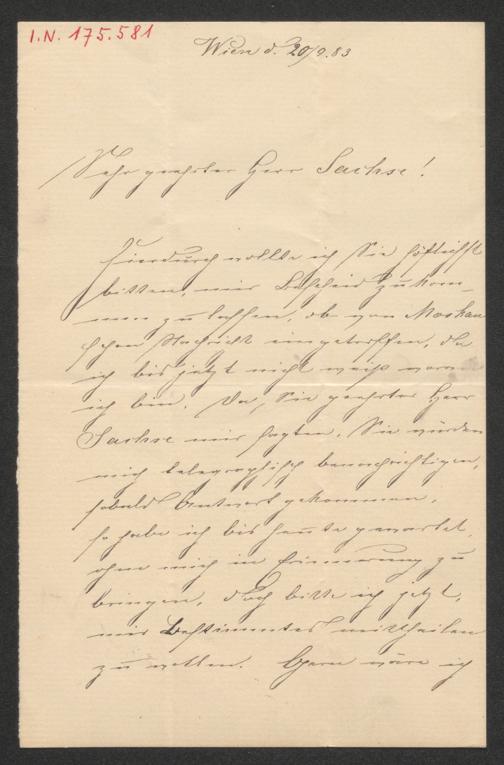 I.N. 175.581
Wien d. 20/9.83
Sehr geehrter Herr Sachse!
Hierdurch wollte ich Sie höflichst
bitten, mir Bescheid zukom-
men zu lassen, ob von Moskau
schon Nachricht eingetroffen, da
ich bis jetzt nicht weiß woran
ich bin. Da, Sie geehrter Herr
Sachse mir sagten, Sie würden
mich telegraphisch benachrichtigen,
sobald Antwort gekommen,
so habe ich bis heute gewartet,
ohne mich in Erinnerung zu
bringen, doch bitte ich jetzt,
mir Bestimmtes mittheilen
zu wollen. Gern wäre ich